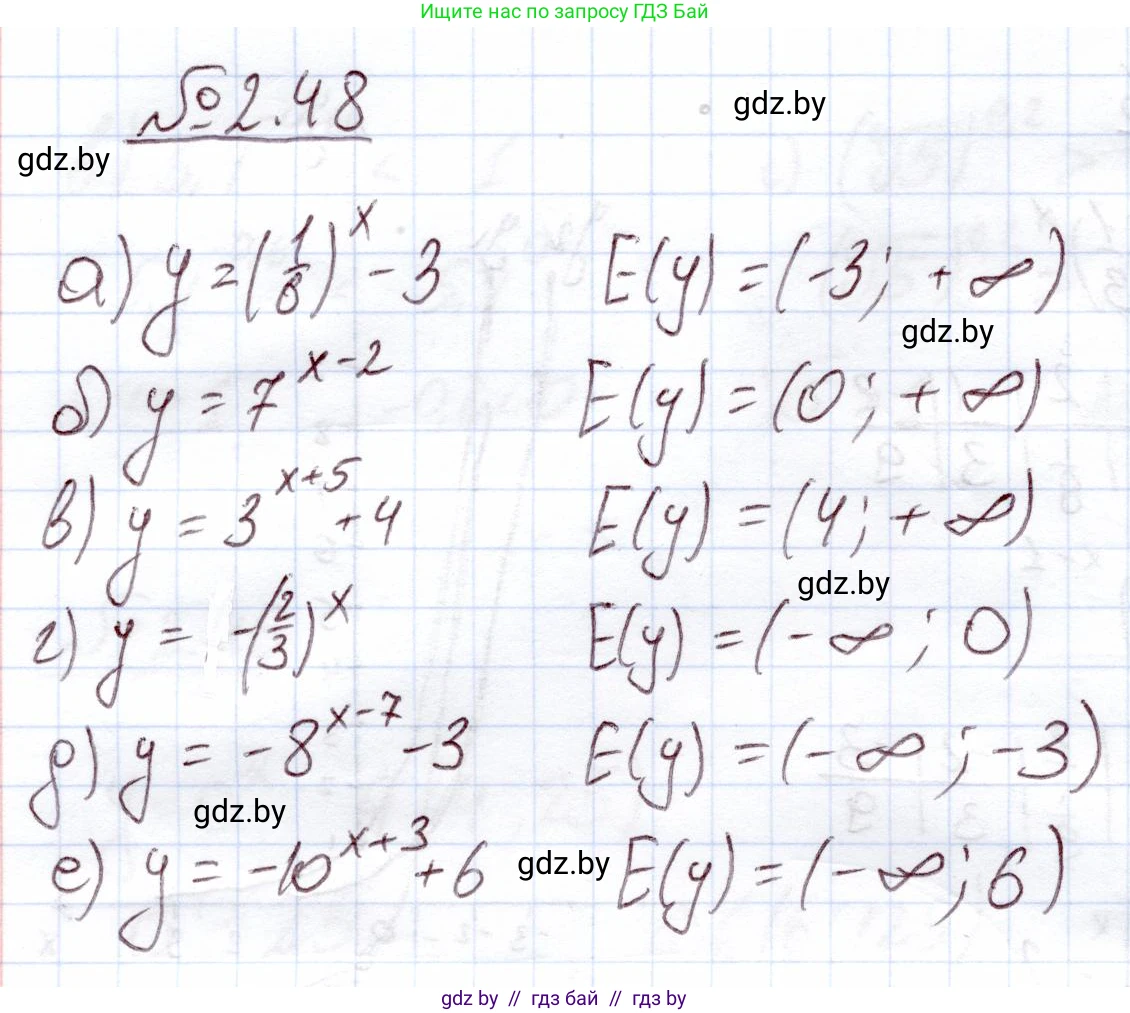 Ищите нас по запросу ГДЗ Бай
№ 2.48
gdz.by
gdz.by
а) y = (1/8)^x - 3 E(y) = (-3; +∞)
gdz.by
б) y = 7^{x-2} E(y) = (0; +∞)
в) y = 3^{x+5} + 4 E(y) = (4; +∞)
gdz.by
г) y = -(2/3)^x E(y) = (-∞; 0)
д) y = -8^{x-7} - 3 E(y) = (-∞; -3)
gdz.by
е) y = -10^{x+3} + 6 E(y) = (-∞; 6)
gdz.by
gdz by // гдз бай // гдз by